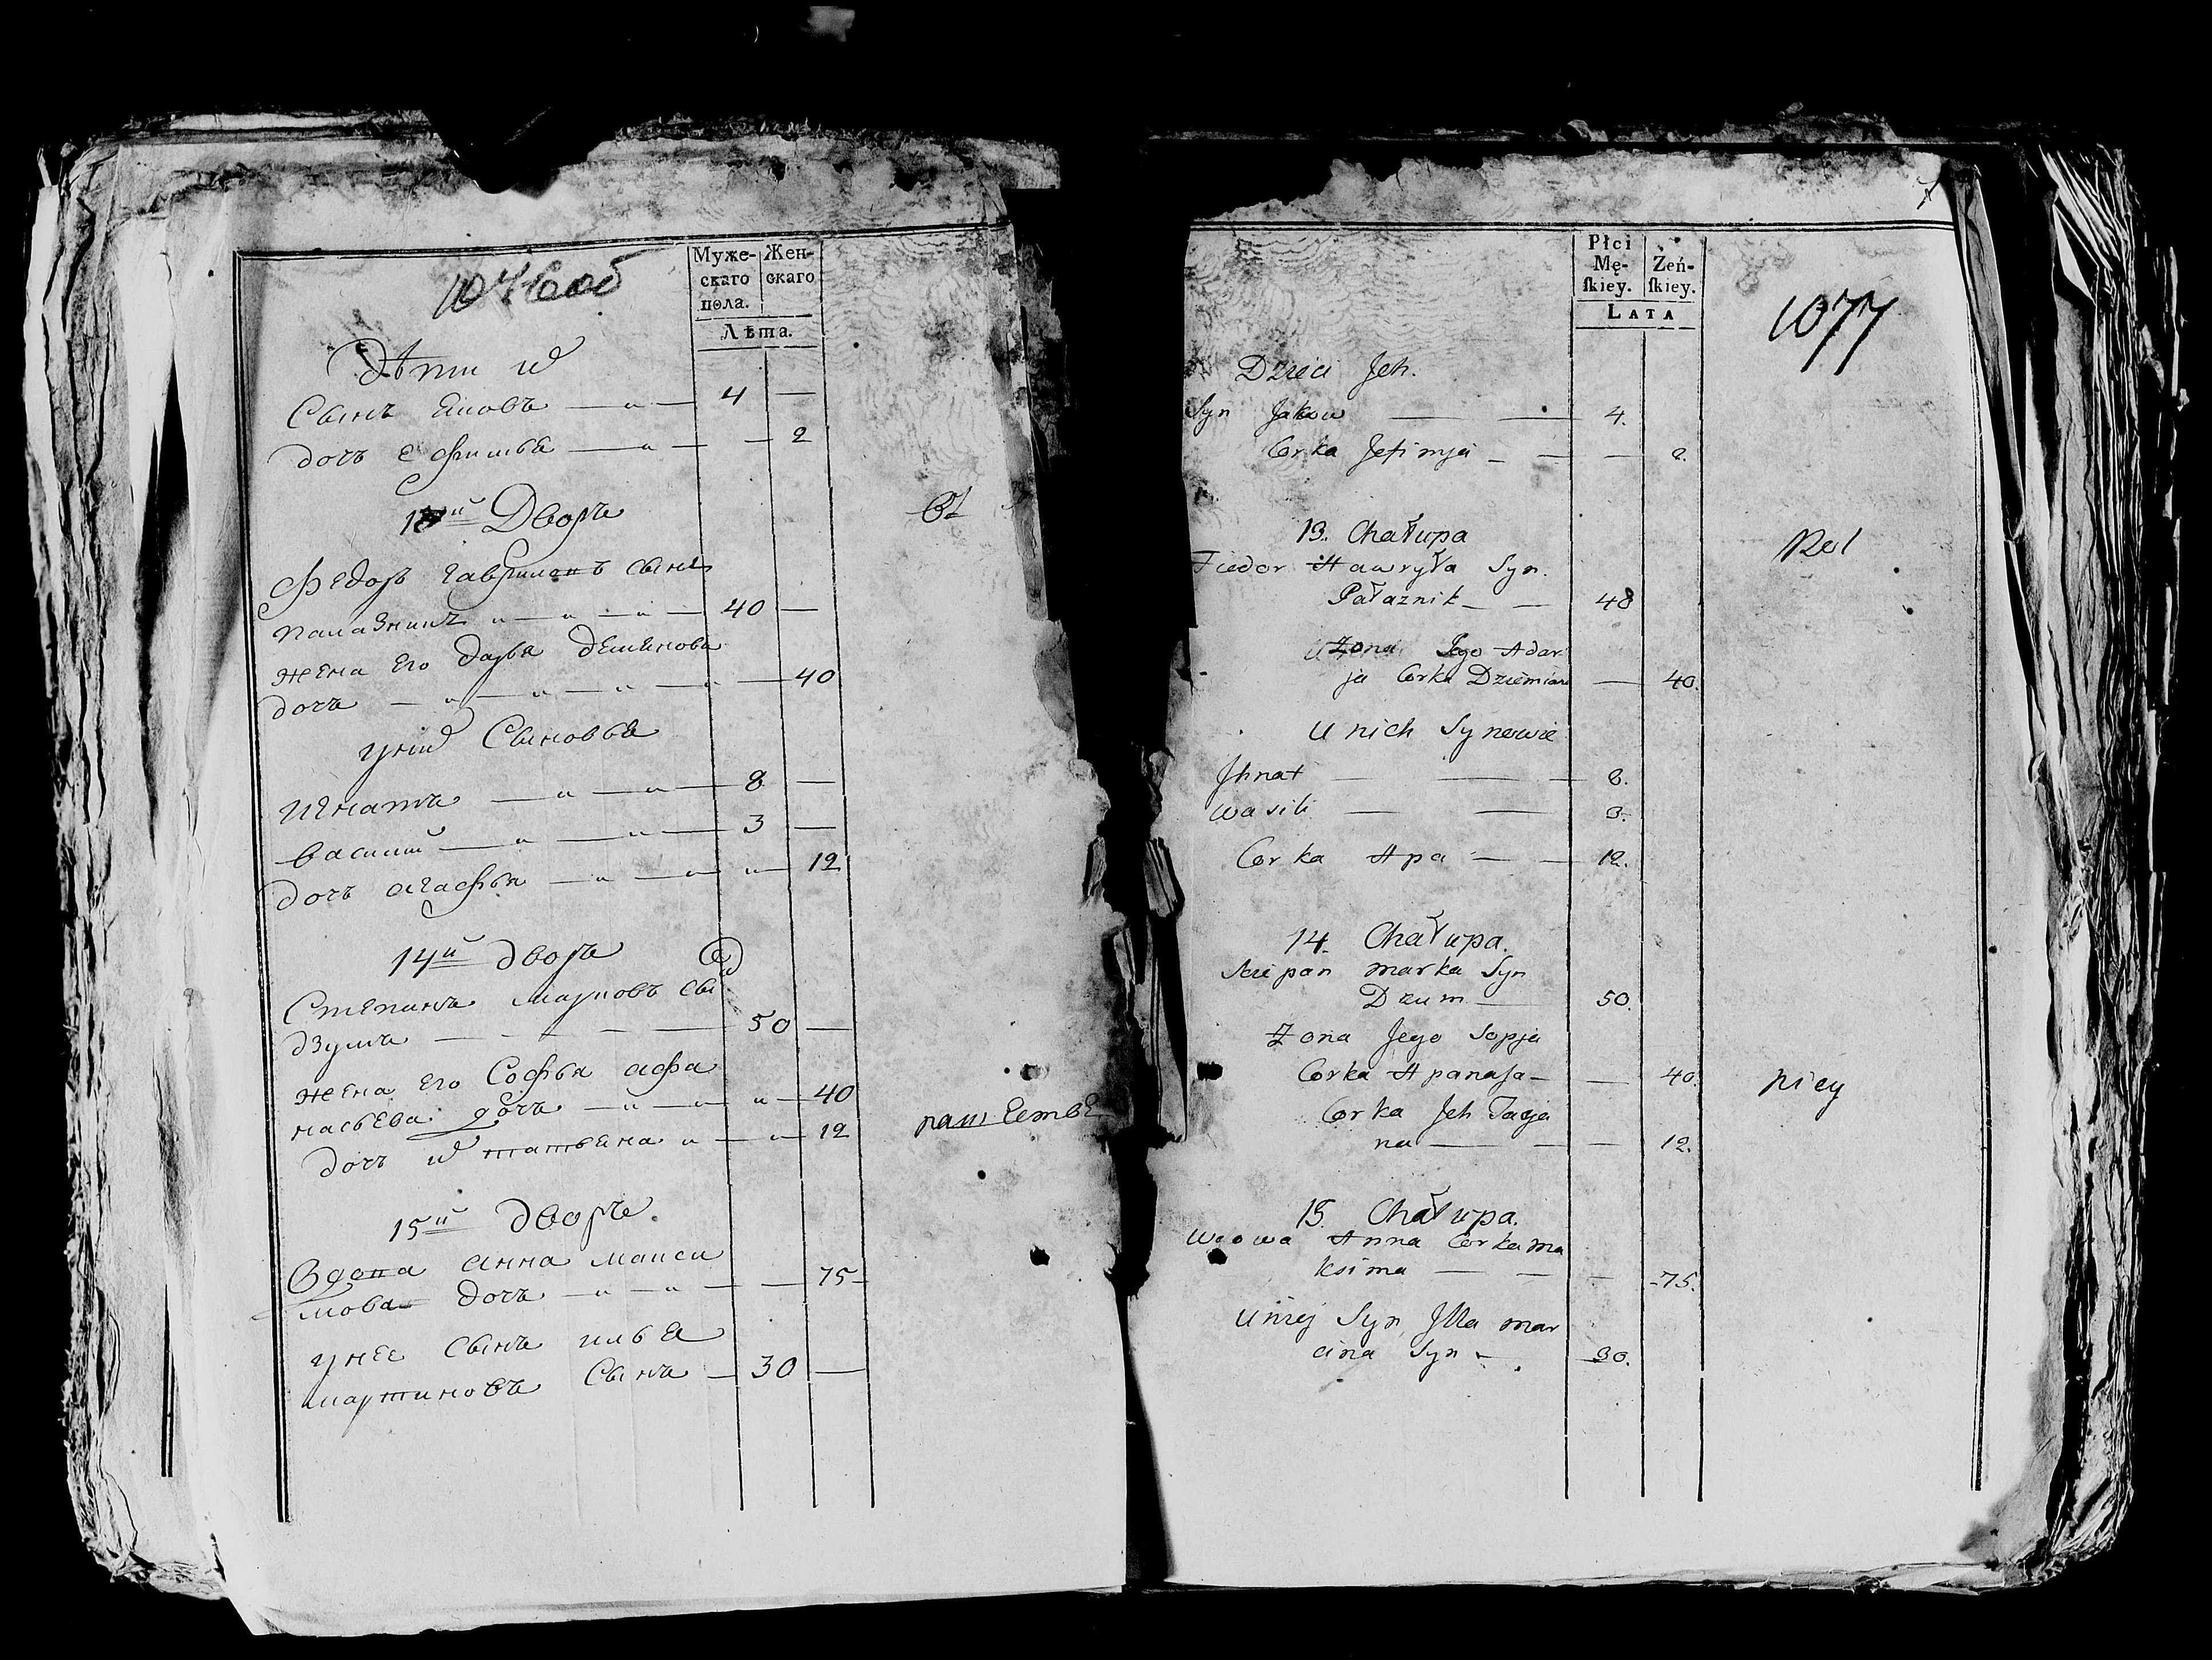 Муже-
скаго
пола.
Жен-
скаго
Лѣта.
Дѣти их
Сынъ Яковъ — 4 —
дочь Ефимья — — 2
13й Дворъ
Федоръ гавриловъ сынъ
палазникъ — 40 —
жена его дарья демянова
дочь — — 40
у них Сыновья
игнатъ — 8 —
василий — 3 —
дочь агафья — — 12
14й дворъ
Степанъ марковъ сы
дзумъ — 50 —
жена его Софья афа
насьева дочь — — 40
дочь их татьяна — — 12
15й дворъ
Вдова анна макси
мова дочь — — 75
у нее сынъ илья
мартиновъ Сынъ — 30 —
Płci
Mę-
ſkiey.
Żeń-
ſkiey.
LATA
1077
Dzieci Jch.
Syn Jakow — 4.
Corka Jefimja — — 2.
13. Chałupa
Fiedor Hawryła Syn.
Pałaznik — 48
Żona Jego Adar
ja Corka Dziemian — 40.
U nich Synowie
Jhnat — 8.
Wasili — 3.
Corka Apa — 12.
14. Chałupa.
Sciepan marka Syn
Dzum — 50.
Żona Jego Sopja
Corka Apanasa — — 40.
Corka Jch Tacja
na — — 12.
15. Chałupa.
Wdowa Anna Corka Ma
ksima — — 75.
U niej Syn Jlla mar
cina Syn — 30.